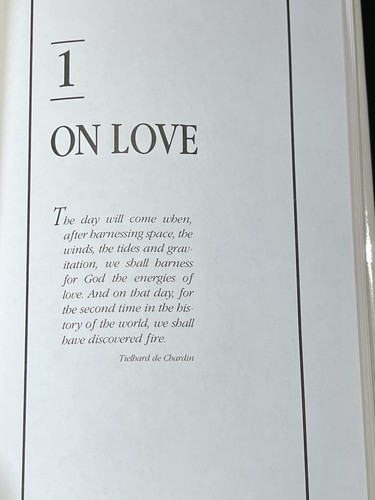 1
ON LOVE
The day will come when,
after harnessing space, the
winds, the tides and grav-
itation, we shall harness
for God the energies of
love. And on that day, for
the second time in the his-
tory of the world, we shall
have discovered fire.
Tielhard de Chardin